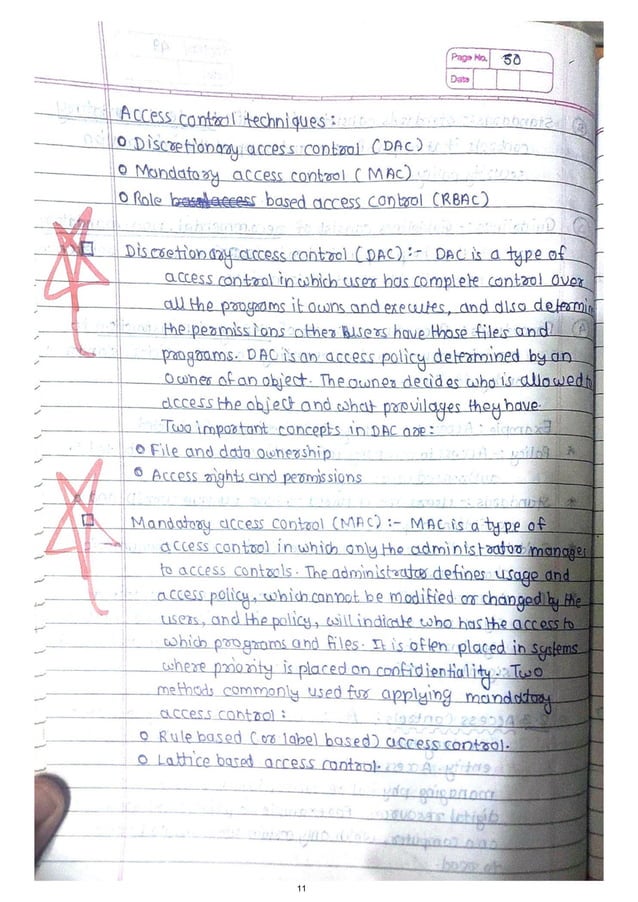 Page No. 50
Date
Access control techniques:
Discretionary access control (DAC)
Mandatory access control (MAC)
Role based access control (RBAC)
Discretionary access control (DAC) :- DAC is a type of
access control in which user has complete control over
all the programs it owns and executes, and also determin
the permissions other users have those files and
programs. DAC is an access policy determined by an
owner of an object. The owner decides who is allowed to
access the object and what previlages they have.
Two important concepts in DAC are:
File and data ownership
Access rights and permissions
Mandatory access control (MAC) :- MAC is a type of
access control in which only the administrator manages
to access controls. The administrator defines usage and
access policy, which cannot be modified or changed by the
users, and the policy, will indicate who has the access to
which programs and files. It is often placed in systems
where priority is placed on confidientiality. Two
methods commonly used for applying mandatory
access control:
Rule based (or label based) access control.
Lattice based access control.
11